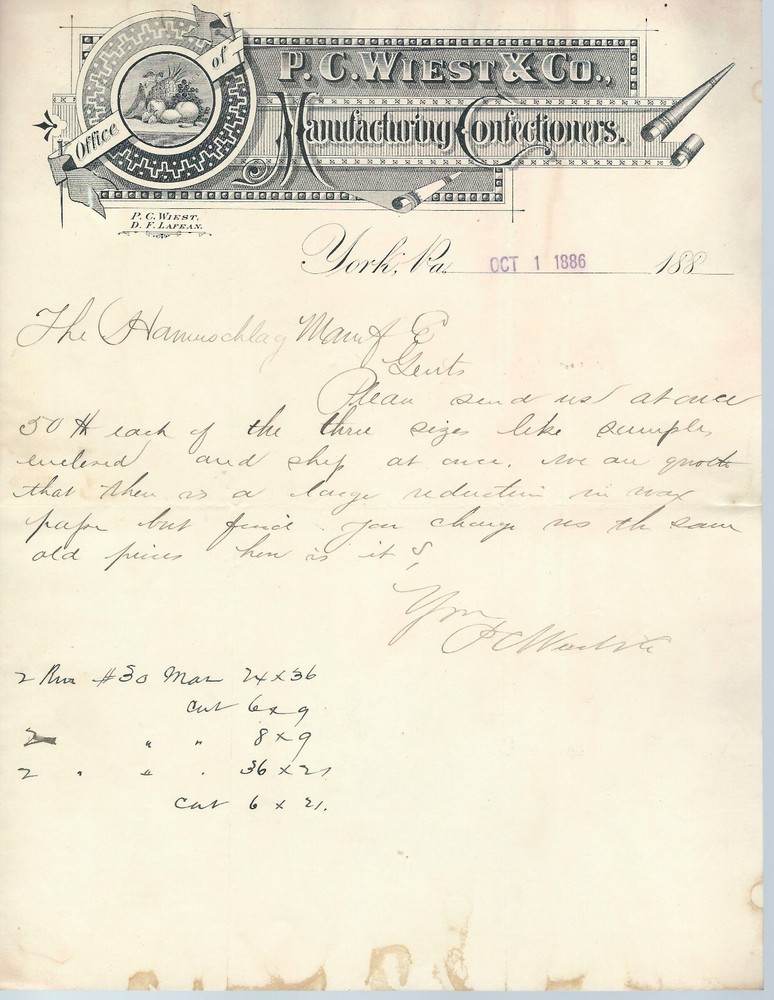 Office of
P. C. WIEST & CO.,
Manufacturing Confectioners.
P. C. WIEST.
D. F. LAFEAN.
York, Pa. OCT 1 1886 188
The Hamerschlag Manuf C
Gents
Please send us at once
50 # each of the three sizes like samples
enclosed and ship at once. We are
that there is a large reduction in wax
paper but find you charge us the same
old prices how is it ?
Yrs
P C Wiest & Co
2 #30 24 x 36
cut 6 x 9
2 " " 8 x 9
2 " " " 36 x 21
cut 6 x 21.